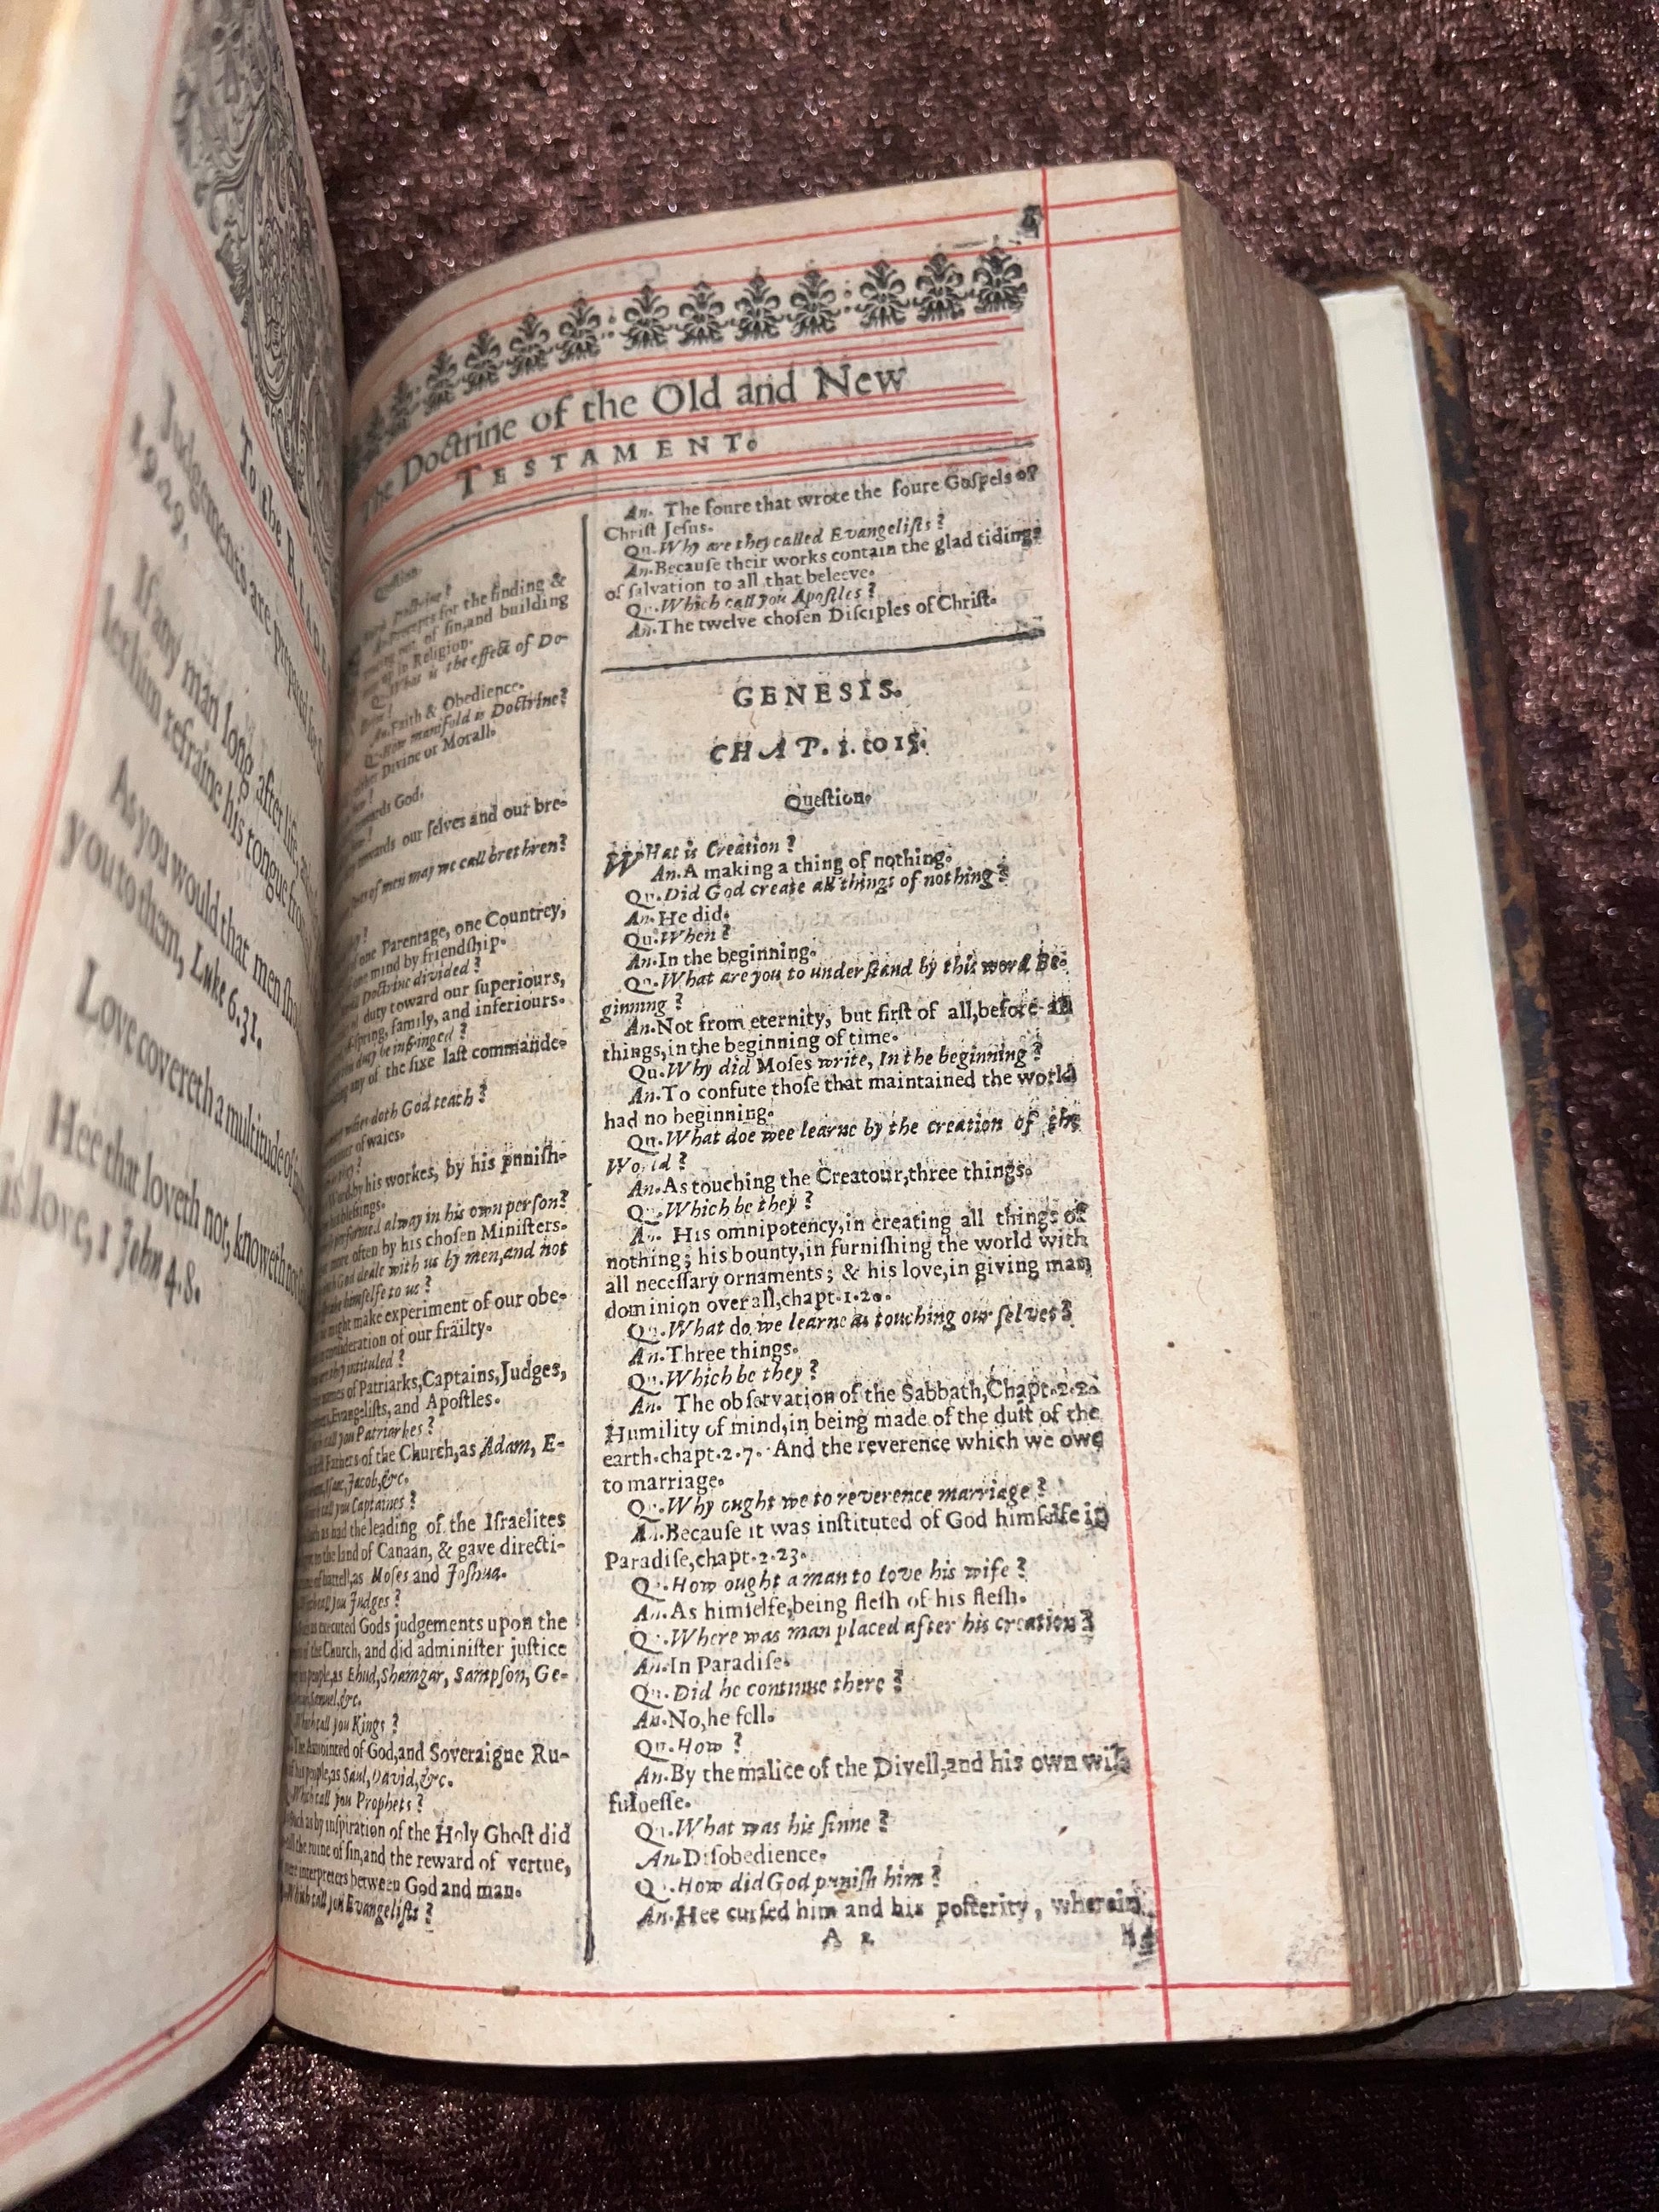 To the READE
Judgements are prepared for S
19.29.
If any man long after life, and
let him refraine his tongue fro
As you would that men sho
you to them, Luke 6.31.
Love covereth a multitude of
Hee that loveth not, knoweth not
is love, 1 John 4.8.
The Doctrine of the Old and New
TESTAMENT.
Question.
precepts for the finding &
out of sin, and building
up in Religion.
Qu. What is the effect of Do-
An. Faith & Obedience.
Qu. How manifold is Doctrine?
either Divine or Morall.
towards God.
towards our selves and our bre-
of men may we call brethren?
one Parentage, one Countrey,
one mind by friendship.
Doctrine divided?
duty toward our superiours,
family, and inferiours.
duty be infringed?
any of the sixe last commande-
doth God teach?
of waies.
by his workes, by his pnnish-
blessings.
alway in his own person?
more often by his chosen Ministers.
God dealt with us by men, and not
himselfe to us?
might make experiment of our obe-
consideration of our frailty.
they instituted?
names of Patriarks, Captains, Judges,
Evangelists, and Apostles.
call you Patriarkes?
Fathers of the Church, as Adam, E-
Isaac, Jacob, &c.
call you Captaines?
as had the leading of the Israelites
to the land of Canaan, & gave directi-
of battell, as Moses and Joshua.
call you Judges?
as executed Gods judgements upon the
of the Church, and did administer justice
people, as Ehud, Shamgar, Sampson, Ge-
Samuel, &c.
Which call you Kings?
The Annointed of God, and Soveraigne Ru-
his people, as Saul, David, &c.
Which call you Prophets?
Such as by inspiration of the Holy Ghost did
the ruine of sin, and the reward of vertue,
were interpreters between God and man.
Which call you Evangelists?
An. The foure that wrote the foure Gospels of
Christ Jesus.
Qu. Why are they called Evangelists?
An. Because their works contain the glad tidings
of salvation to all that beleeve.
Qu. Which call you Apostles?
An. The twelve chosen Disciples of Christ.
GENESIS.
CHAP. 1. to 15.
Question.
WHat is Creation?
An. A making a thing of nothing.
Qu. Did God create all things of nothing?
An. He did.
Qu. When?
An. In the beginning.
Qu. What are you to understand by this word Be-
ginning?
An. Not from eternity, but first of all, before all
things, in the beginning of time.
Qu. Why did Moses write, In the beginning?
An. To confute those that maintained the world
had no beginning.
Qu. What doe wee learne by the creation of the
World?
An. As touching the Creatour, three things.
Qu. Which be they?
An. His omnipotency, in creating all things of
nothing; his bounty, in furnishing the world with
all necessary ornaments; & his love, in giving man
dominion over all, chapt. 1. 20.
Qu. What do we learne as touching our selves?
An. Three things.
Qu. Which be they?
An. The observation of the Sabbath, Chapt. 2.2.
Humility of mind, in being made of the dust of the
earth. chapt. 2. 7. And the reverence which we owe
to marriage.
Qu. Why ought we to reverence marriage?
An. Because it was instituted of God himselfe in
Paradise, chapt. 2. 23.
Qu. How ought a man to love his wife?
An. As himselfe, being flesh of his flesh.
Qu. Where was man placed after his creation?
An. In Paradise.
Qu. Did he continue there?
An. No, he fell.
Qu. How?
An. By the malice of the Divell, and his own wil-
fulnesse.
Qu. What was his sinne?
An. Disobedience.
Qu. How did God punish him?
An. Hee cursed him and his posterity, wherein
A 2